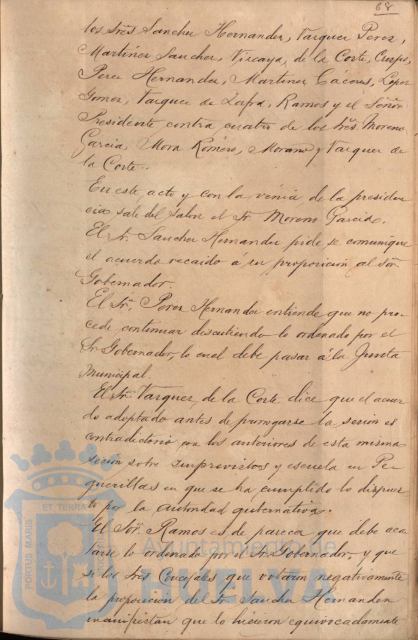 68
los Sres Sanchez Hernandez, Vazquez Perez,
Martinez Sanchez, Vizcaya, de la Corte, Crespo,
Perez Hernandez, Martinez Cáceres, Lopez
Gomez, Vazquez de Zafra, Ramos y el Señor
Presidente contra cuatro de los Sres. Moreno
Garcia, Mora Romero, Morano y Vazquez de
la Corte.
En este acto y con la vénia de la presiden
cia sale del Salon el Sr Moreno Garcia.
El Sr. Sanchez Hernandez pide se comunique
el acuerdo recaido á su proposicion al Sor
Gobernador.
El Sr. Perez Hernandez entiende que no pro-
cede continuar discutiendo lo ordenado por el
Sr Gobernador, lo cual debe pasar á la Junta
Municipal.
El Sr. Vazquez de la Corte dice que el acuer
do adoptado antes de prorrogarse la sesion es
contradictorio con los anteriores de esta misma
sesion sobre imprevistos y escuela en Pe-
guerillas en que se ha cumplido lo dispues
to por la autoridad gubernativa.
El Sor. Ramos es de parecer que debe aca
tarse lo ordenado por el Sr Gobernador, y que
si los Sres Concejales que votaron negativamente
la proposicion del Sr. Sanchez Hernandez
manifiestan que lo hicieron equivocadamente
PORTUS MARIS ET TERRAE
Ayuntamiento de
HUELVA